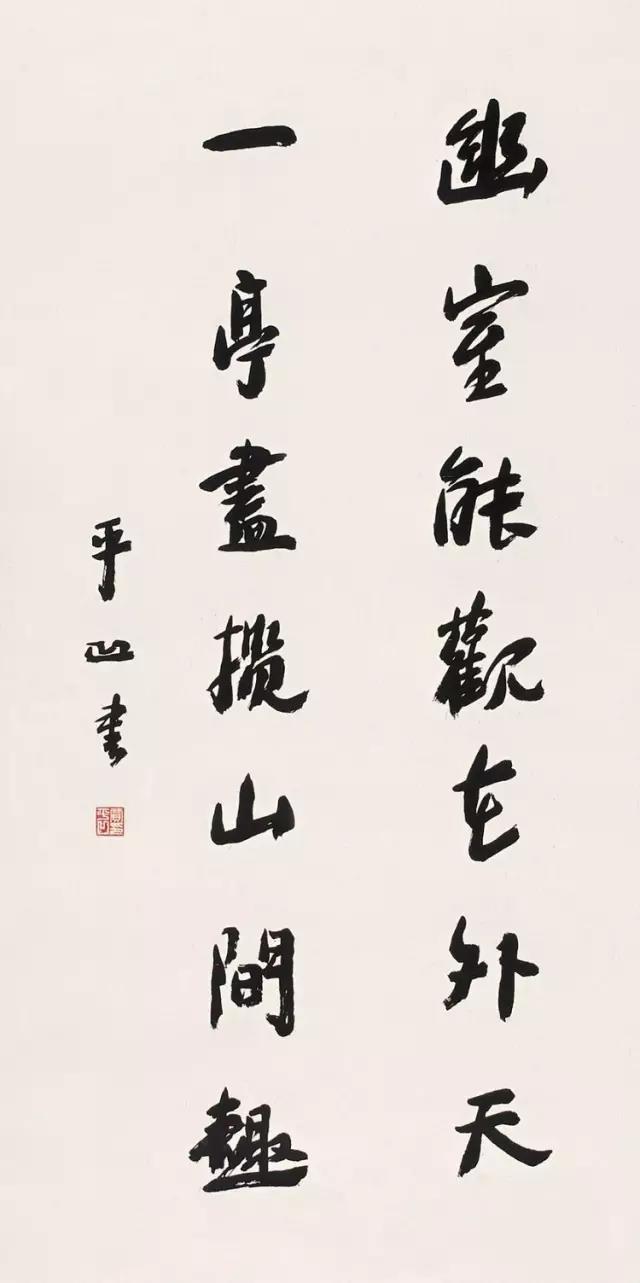 幽室能觀在外天
一亭盡攬山間趣
平凹書